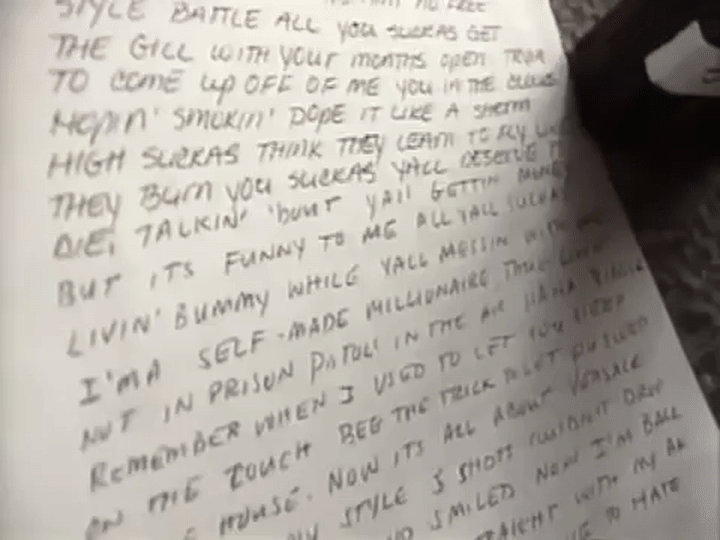 FREE
STYLE BATTLE ALL YOU SUCKAS GET
THE GILL WITH YOUR MOUTHS OPEN TRYA
TO COME UP OFF OF ME YOU IN THE CLOUDS
HOPIN' SMOKIN' DOPE IT LIKE A SHERM
HIGH SUCKAS THINK THEY LEARN TO FLY
THEY BURN YOU SUCKAS YALL DESERVE T
DIE, TALKIN' 'BOUT YALL GETTIN MONEY
BUT ITS FUNNY TO ME ALL YALL SUCKAS
LIVIN' BUMMY WHILE YALL MESSIN WITH ME
I'MA SELF-MADE MILLIONAIRE THUG LIVIN
NOT IN PRISON PISTOLS IN THE AIR
REMEMBER WHEN I USED TO LET YOU SLEEP
ON THE COUCH BEG THE TRICK TO LET
HOUSE. NOW ITS ALL ABOUT VERSACE
STYLE 5 SHOTS COULDN'T DROP
SMILED NOW I'M BALL
STRAIGHT WITH MY AK
TO HATE